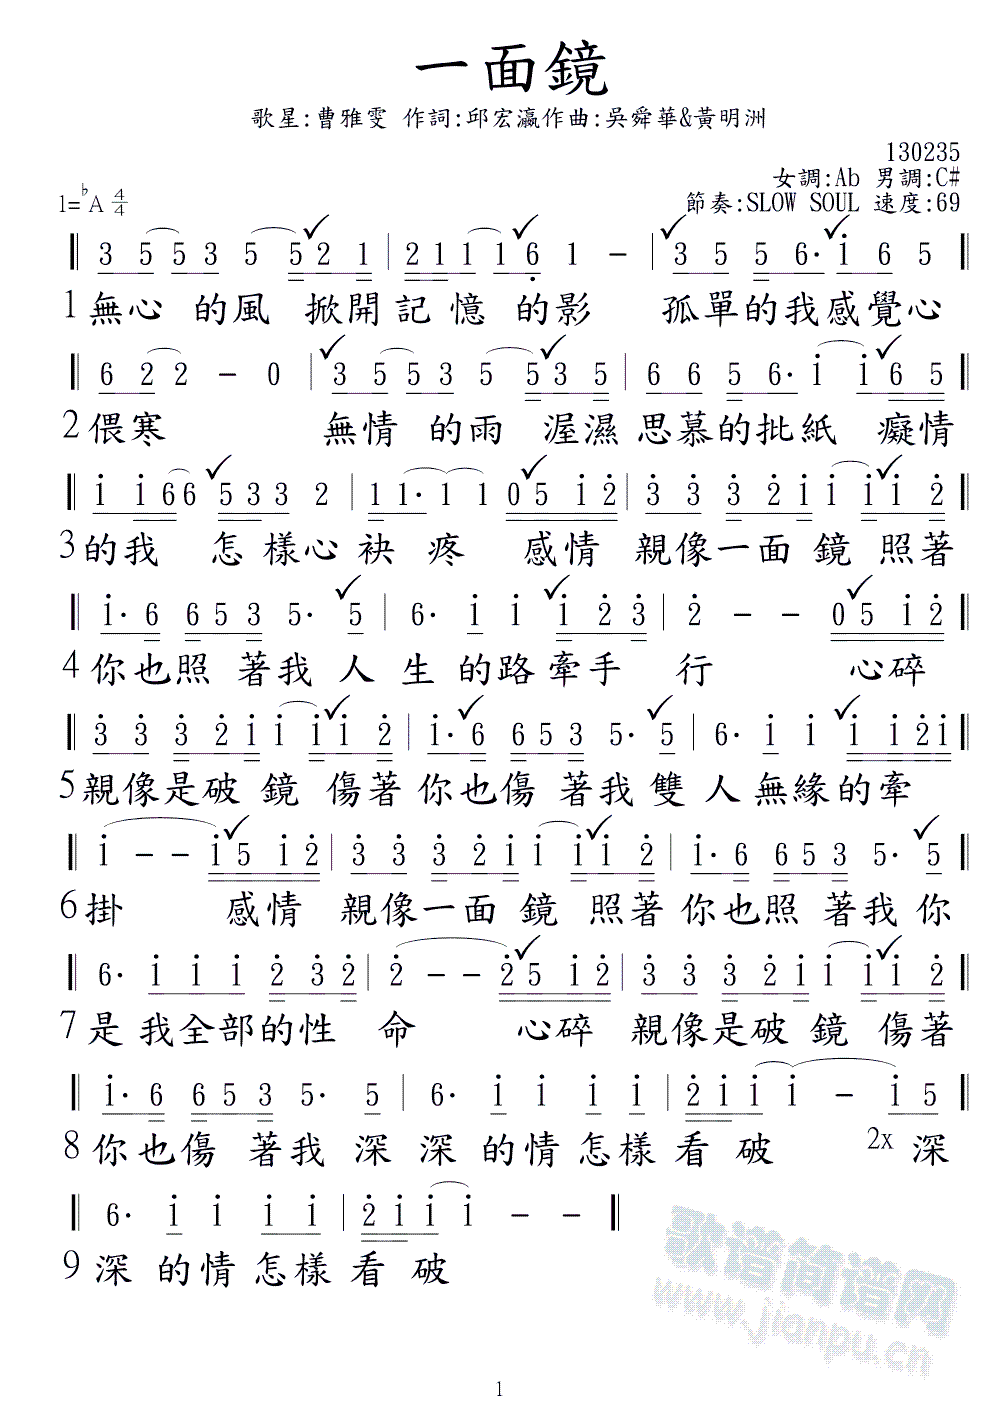 一面鏡
歌星:曹雅雯 作詞:邱宏瀛作曲:吳舜華&黃明洲
130235
女調:Ab 男調:C#
1=♭A 4/4
節奏:SLOW SOUL 速度:69
3 5 5 3 5 5 2 1 | 2 1 1 1 1 6 1 - | 3 5 5 6· 1 6 5
1 無心 的風 掀開記憶 的影 孤單的我感覺心
6 2 2 - 0 | 3 5 5 3 5 5 3 5 | 6 6 5 6· 1 1 6 5
2 偎寒 無情 的雨 渥濕思慕的批紙 癡情
1 1 6 6 5 3 3 2 | 1 1· 1 1 0 5 1 2 | 3 3 3 2 1 1 1 1 2
3 的我 怎樣心袂疼 感情 親像一面鏡 照著
1· 6 6 5 3 5· 5 | 6· 1 1 1 2 3 | 2 - - 0 5 1 2
4 你也照 著我人生 的路牽手 行 心碎
3 3 3 2 1 1 1 1 2 | 1· 6 6 5 3 5· 5 | 6· 1 1 1 1 2 1
5 親像是破鏡 傷著你也傷 著我雙人無緣的牽
1 - - 1 5 1 2 | 3 3 3 2 1 1 1 1 2 | 1· 6 6 5 3 5· 5
6 掛 感情 親像一面鏡 照著你也照 著我你
6· 1 1 1 2 3 2 | 2 - - 2 5 1 2 | 3 3 3 2 1 1 1 1 2
7 是我全部的性命 心碎 親像是破鏡 傷著
1· 6 6 5 3 5· 5 | 6· 1 1 1 1 | 2 1 1 1 - 1 5
8 你也傷 著我深深 的情怎樣看破 2x 深
6· 1 1 1 1 | 2 1 1 1 - -
9 深 的情怎樣看破
歌谱简谱网
www.jianpu.cn
1